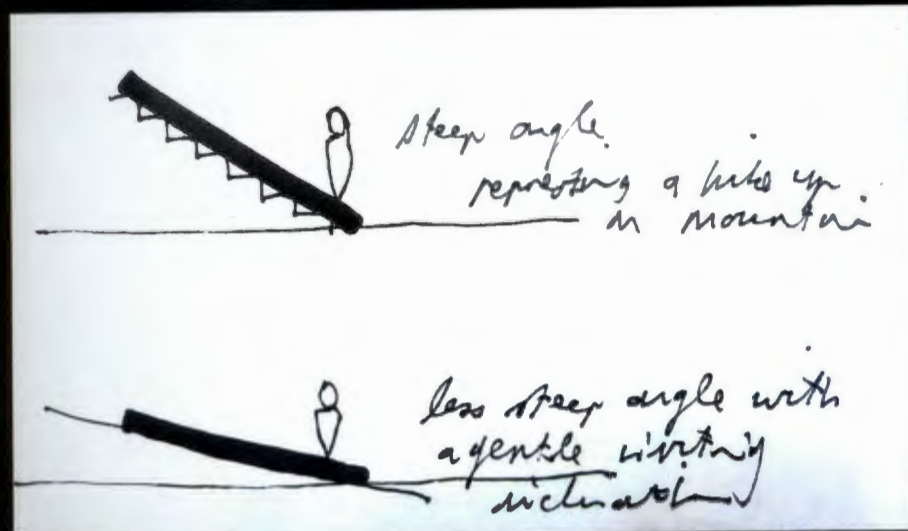 steep angle
representing a hike up
in mountain
less steep angle with
a gentle inviting
inclination